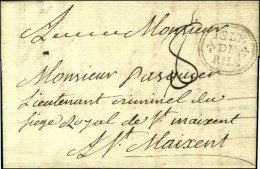 A Monsieur
8
ISLE
DE
RHE
Monsieur Pasquier
Lieutenant criminel du
siege Royal de St maixent
A St Maixent